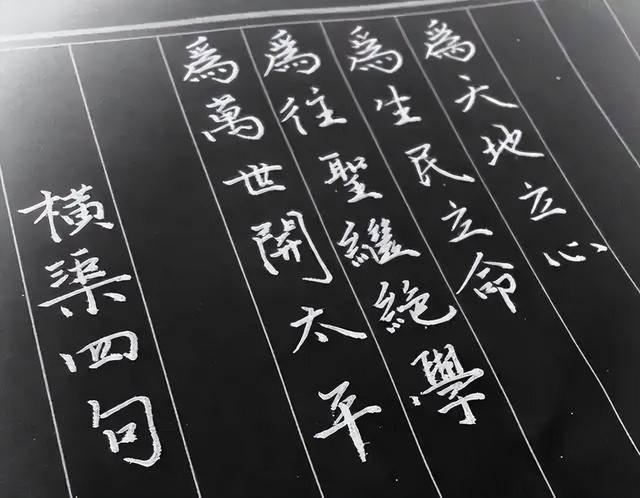 為天地立心
為生民立命
為往聖繼絕學
為萬世開太平
橫渠四句